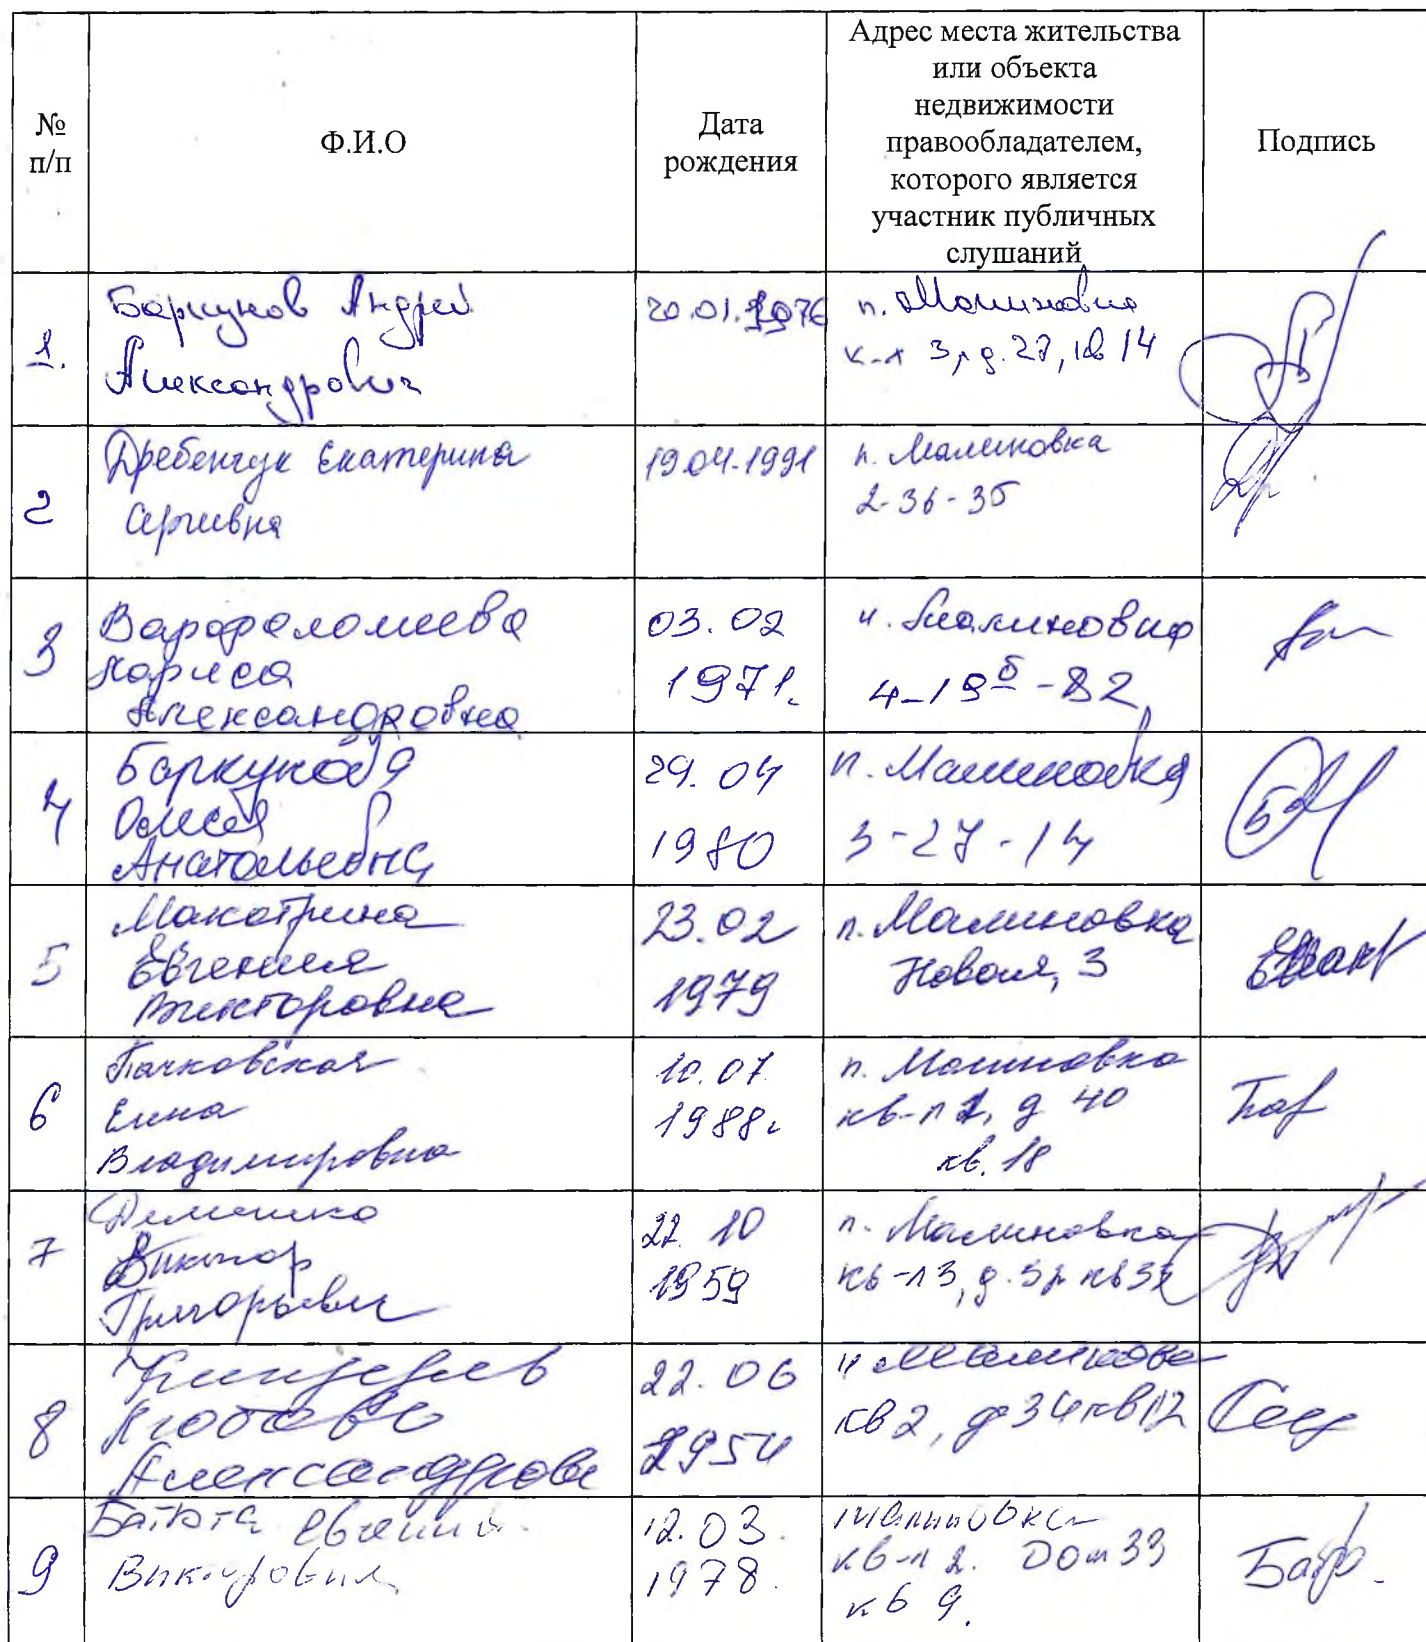 №
п/п
Ф.И.О
Дата
рождения
Адрес места жительства
или объекта
недвижимости
правообладателем,
которого является
участник публичных
слушаний
Подпись
1.
Баркунов Андрей
Александрович
20.01.1976
п. Малиновка
к-л 3, д. 27, кв 14
2
Дребенчук Екатерина
Сергеевна
19.04.1991
п. Малиновка
2-36-35
3
Варфоломеева
Лариса
Александровна
03.02
1971г.
п. Малиновка
4-19б-82
4
Баркунова
Олеся
Анатольевна
29.04
1980
п. Малиновка
3-27-14
5
Макотрина
Евгения
Викторовна
23.02
1979
п. Малиновка
Новая, 3
6
Елена
Владимировна
10.07.
1988г
п. Малиновка
кв-л 1, д 40
кв. 18
7
Демешко
Виктор
Григорьевич
22.10
1959
п. Малиновка
кв-л 3, д.
8
Александровн
22.06
1954
п Малиновка
кв 2, д 34 кв 12
9
Батюта Евгений
Викторович
12.03.
1978.
Малиновка
кв-л 2. Дом 33
кв 9.